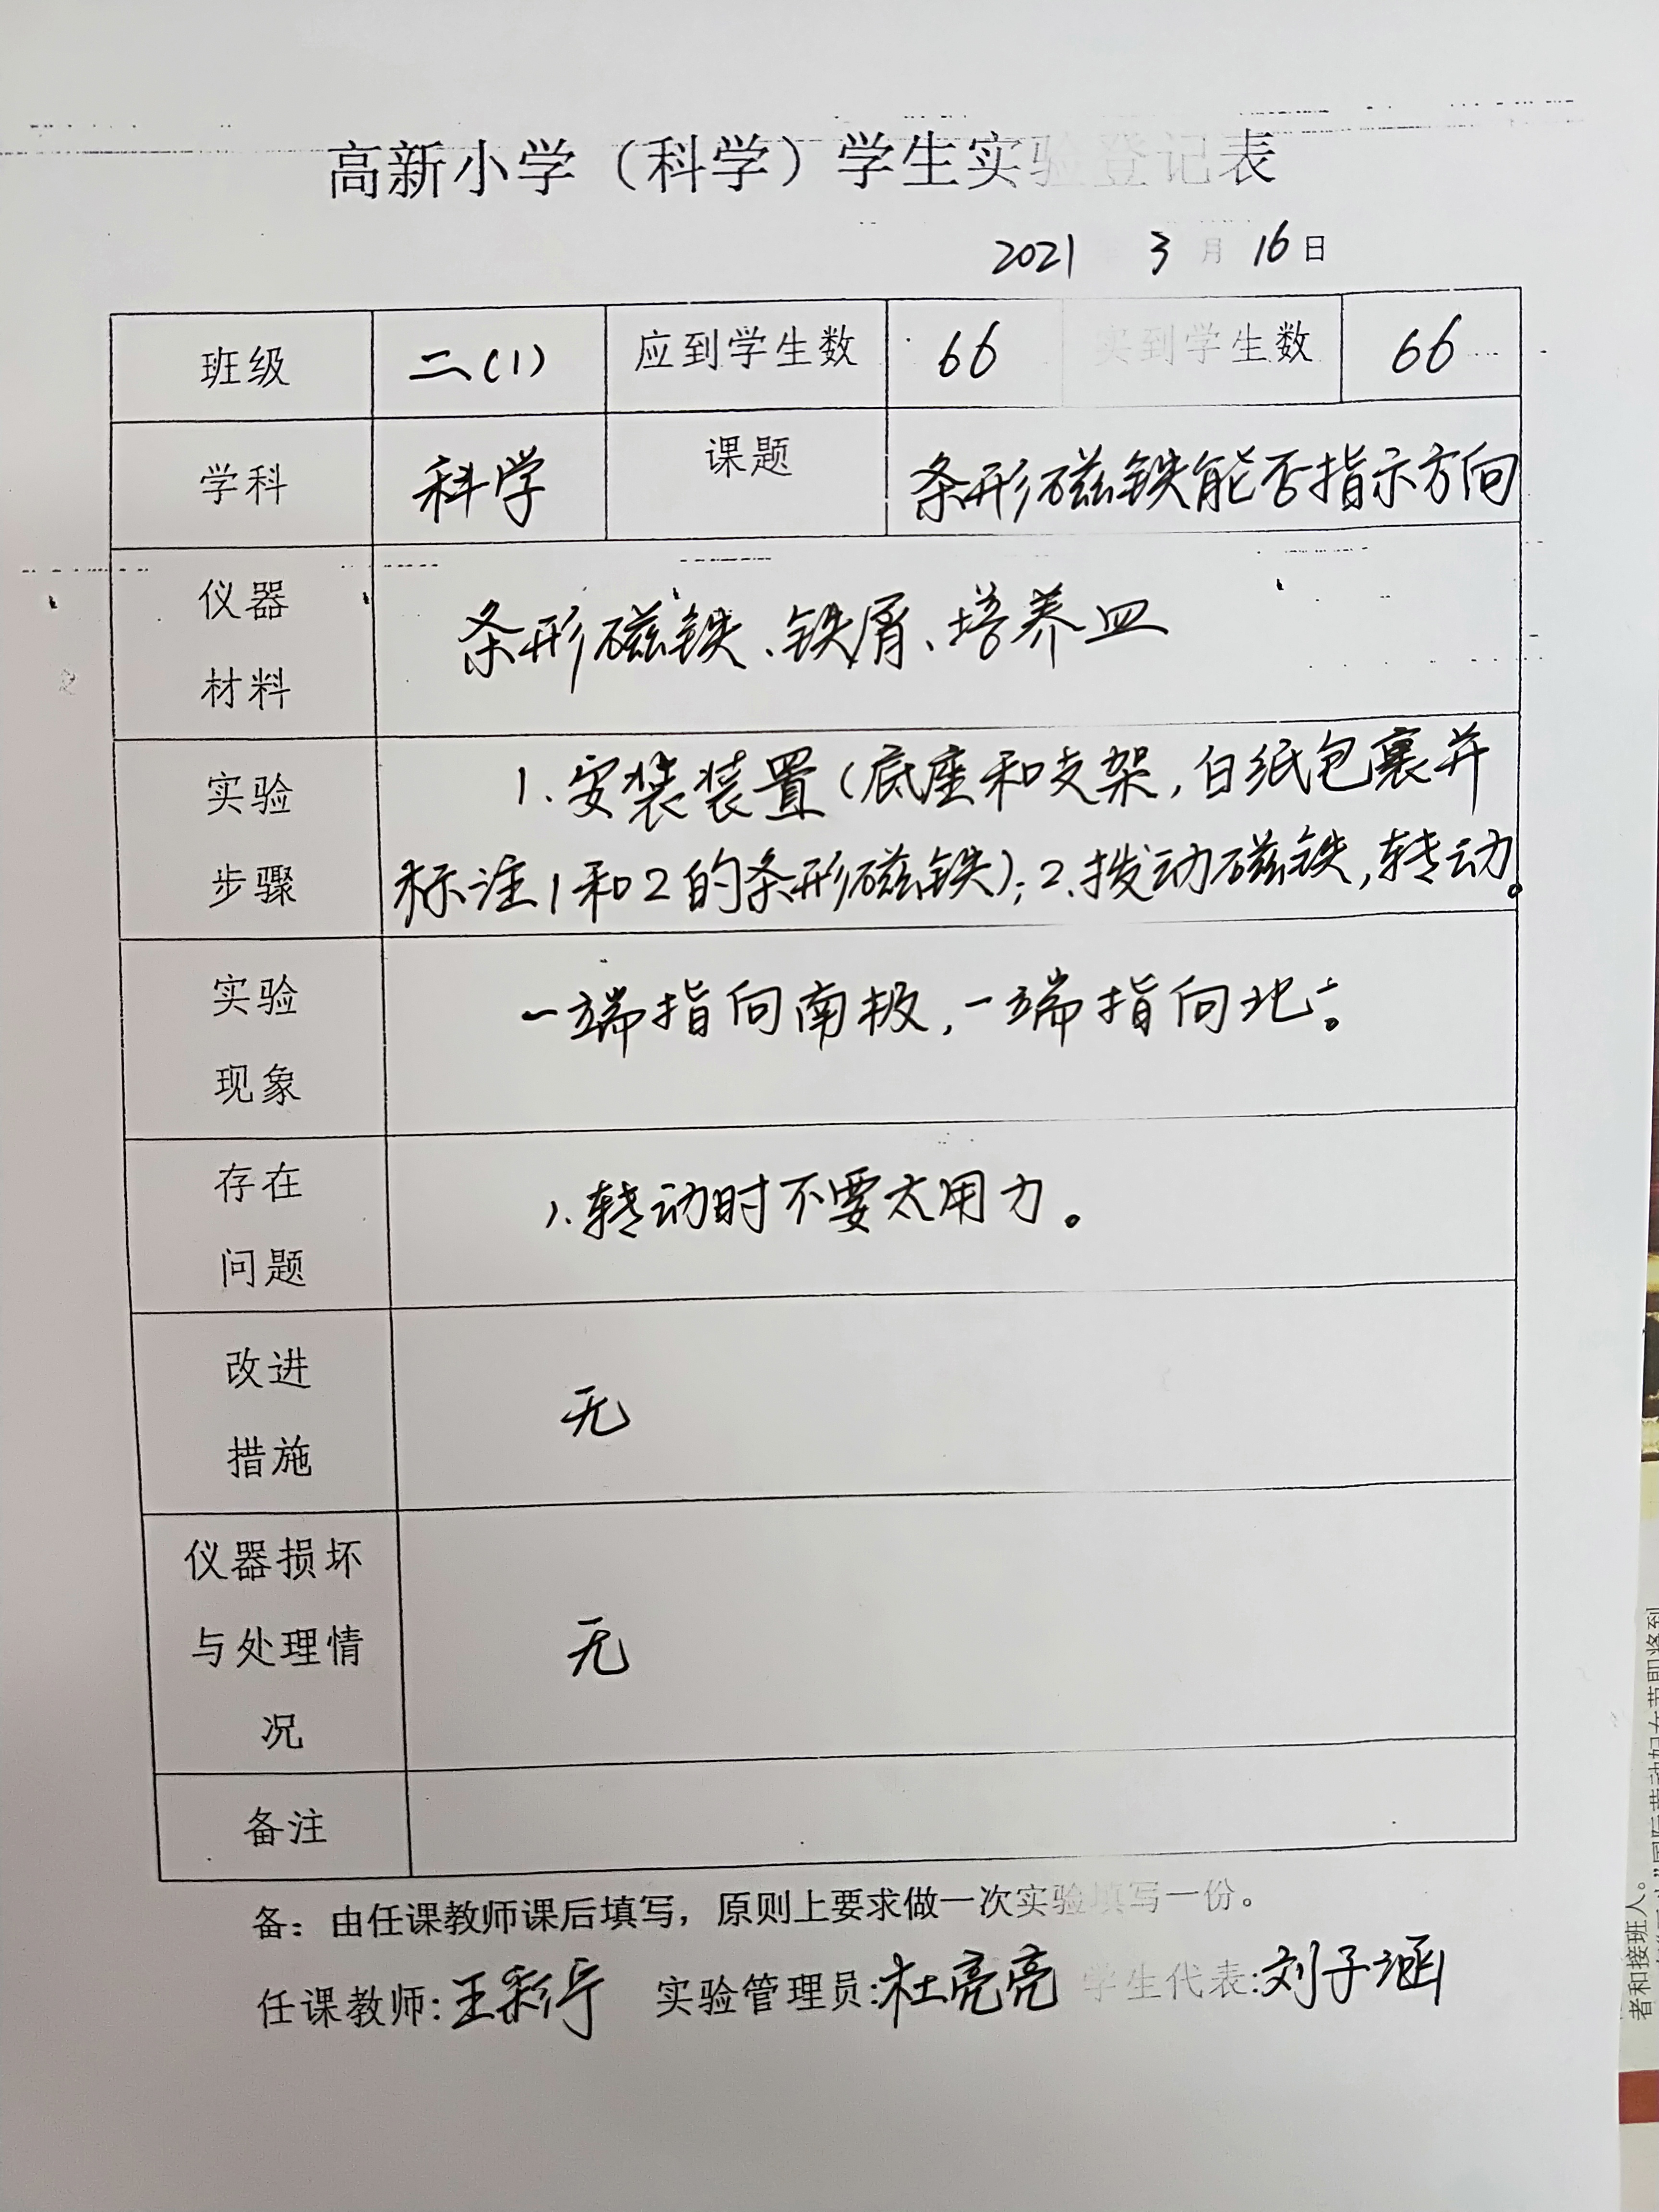 高新小学（科学）学生实验登记表
2021年 3月 16日
班级 二(1) 应到学生数 66 实到学生数 66
学科 科学 课题 条形磁铁能否指示方向
仪器
材料
条形磁铁、铁屑、培养皿
实验
步骤
1.安装装置(底座和支架,白纸包裹并
标注1和2的条形磁铁);2.拨动磁铁,转动。
实验
现象
一端指向南极,一端指向北。
存在
问题
1.转动时不要太用力。
改进
措施
无
仪器损坏
与处理情
况
无
备注
备：由任课教师课后填写，原则上要求做一次实验填写一份。
任课教师:王彩宁 实验管理员:杜亮亮 学生代表:刘子涵
者和接班人。